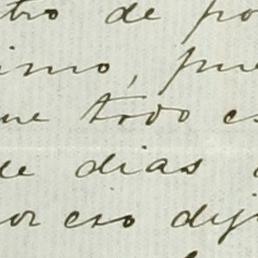 tro de po
imo, pue
ue todo es
de dias
or eso dij